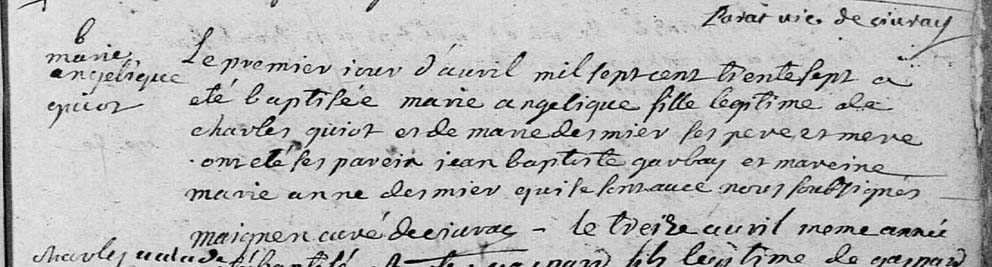 Parat vic. de civray
b
marie
angelique
quiot
Le premier jour d'avril mil sept cent trente sept a
eté baptisée marie angelique fille legitime de
charles quiot et de marie desmier ses pere et mere
ont eté ses parein jean baptiste garbay et mareine
marie anne desmier qui se sont avec nous soubsignés
maignen curé de civray - le treize avril meme année
charles valade
eté baptisé gaspard fils legitime de gaspard